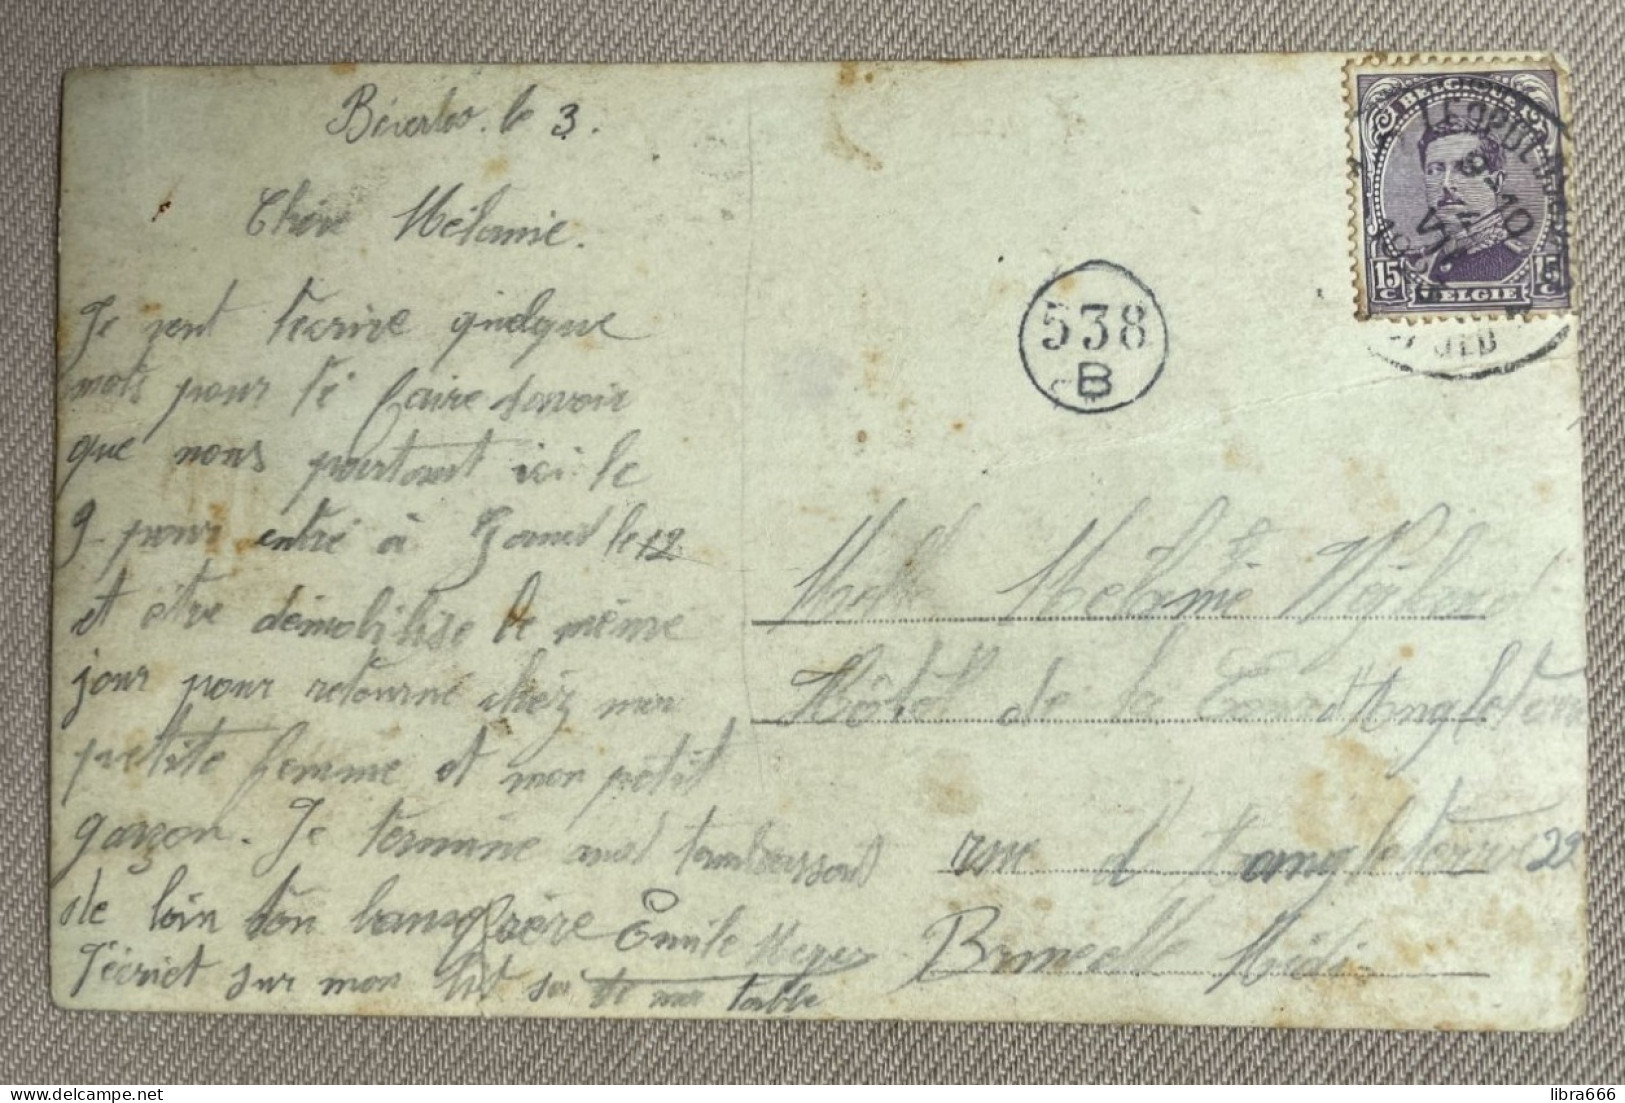 Béverloo. le 3.
Chère Mélanie.
Je vent t'écrire quelque
mots pour te faire savoir
que nous partont ici le
9 pour entré à Gand le 12
et être démobilisé le même
jour pour retourné chez ma
petite femme et mon petit
garçon. Je termine and t'embrassant
de loin ton beauxfrère Emile Meyer
J'écriet sur mon lit
ma table
BELGIQUE
15 C 15 C
BELGIE
LEOPOLDSBURG
538
B
Melle Mélanie
Hôtel de la Cour d'Angleterre
rue d'Langleterre 22
Bruxelle Midi
libra666